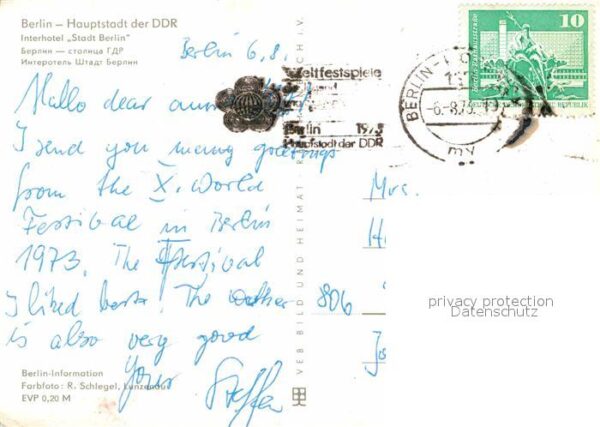 Berlin – Hauptstadt der DDR
Interhotel „Stadt Berlin"
Берлин — столица ГДР
Интеротель Штадт Берлин
Berlin 6.8.
Hallo dear
I send you many greetings
from the X. World
Festival in Berlin
1973. The Festival
I liked best! The weather
is also very good
Your Steffen
Berlin-Information
Farbfoto: R. Schlegel, Lunzenau
EVP 0,20 M
VEB BILD UND HEIMAT REICHENBACH i. V.
Weltfestspiele
Berlin 1973
Hauptstadt der DDR
BERLIN
-6.-8.73
10
Mrs.
806
privacy protection
Datenschutz